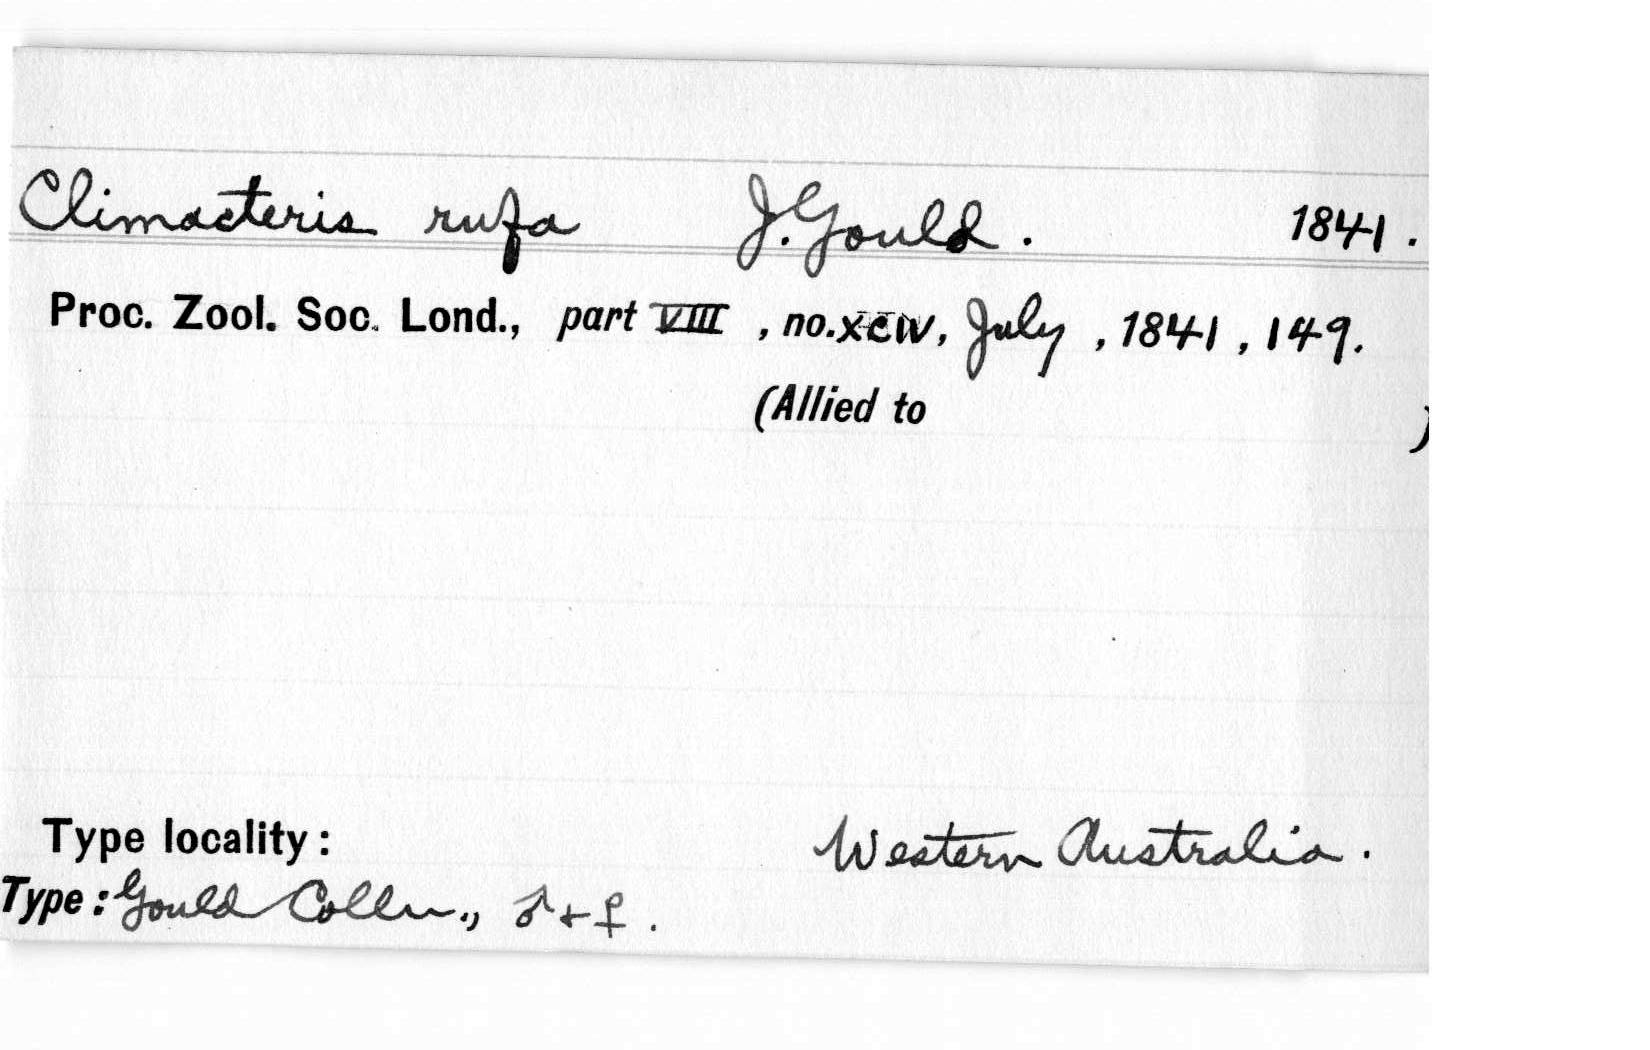 Climacteris rufa J. Gould. 1841.
Proc. Zool. Soc. Lond., part VIII, no. XCIV, July, 1841, 149.
(Allied to )
Type locality: Western Australia.
Type: Gould Colln., ♂ + ♀.